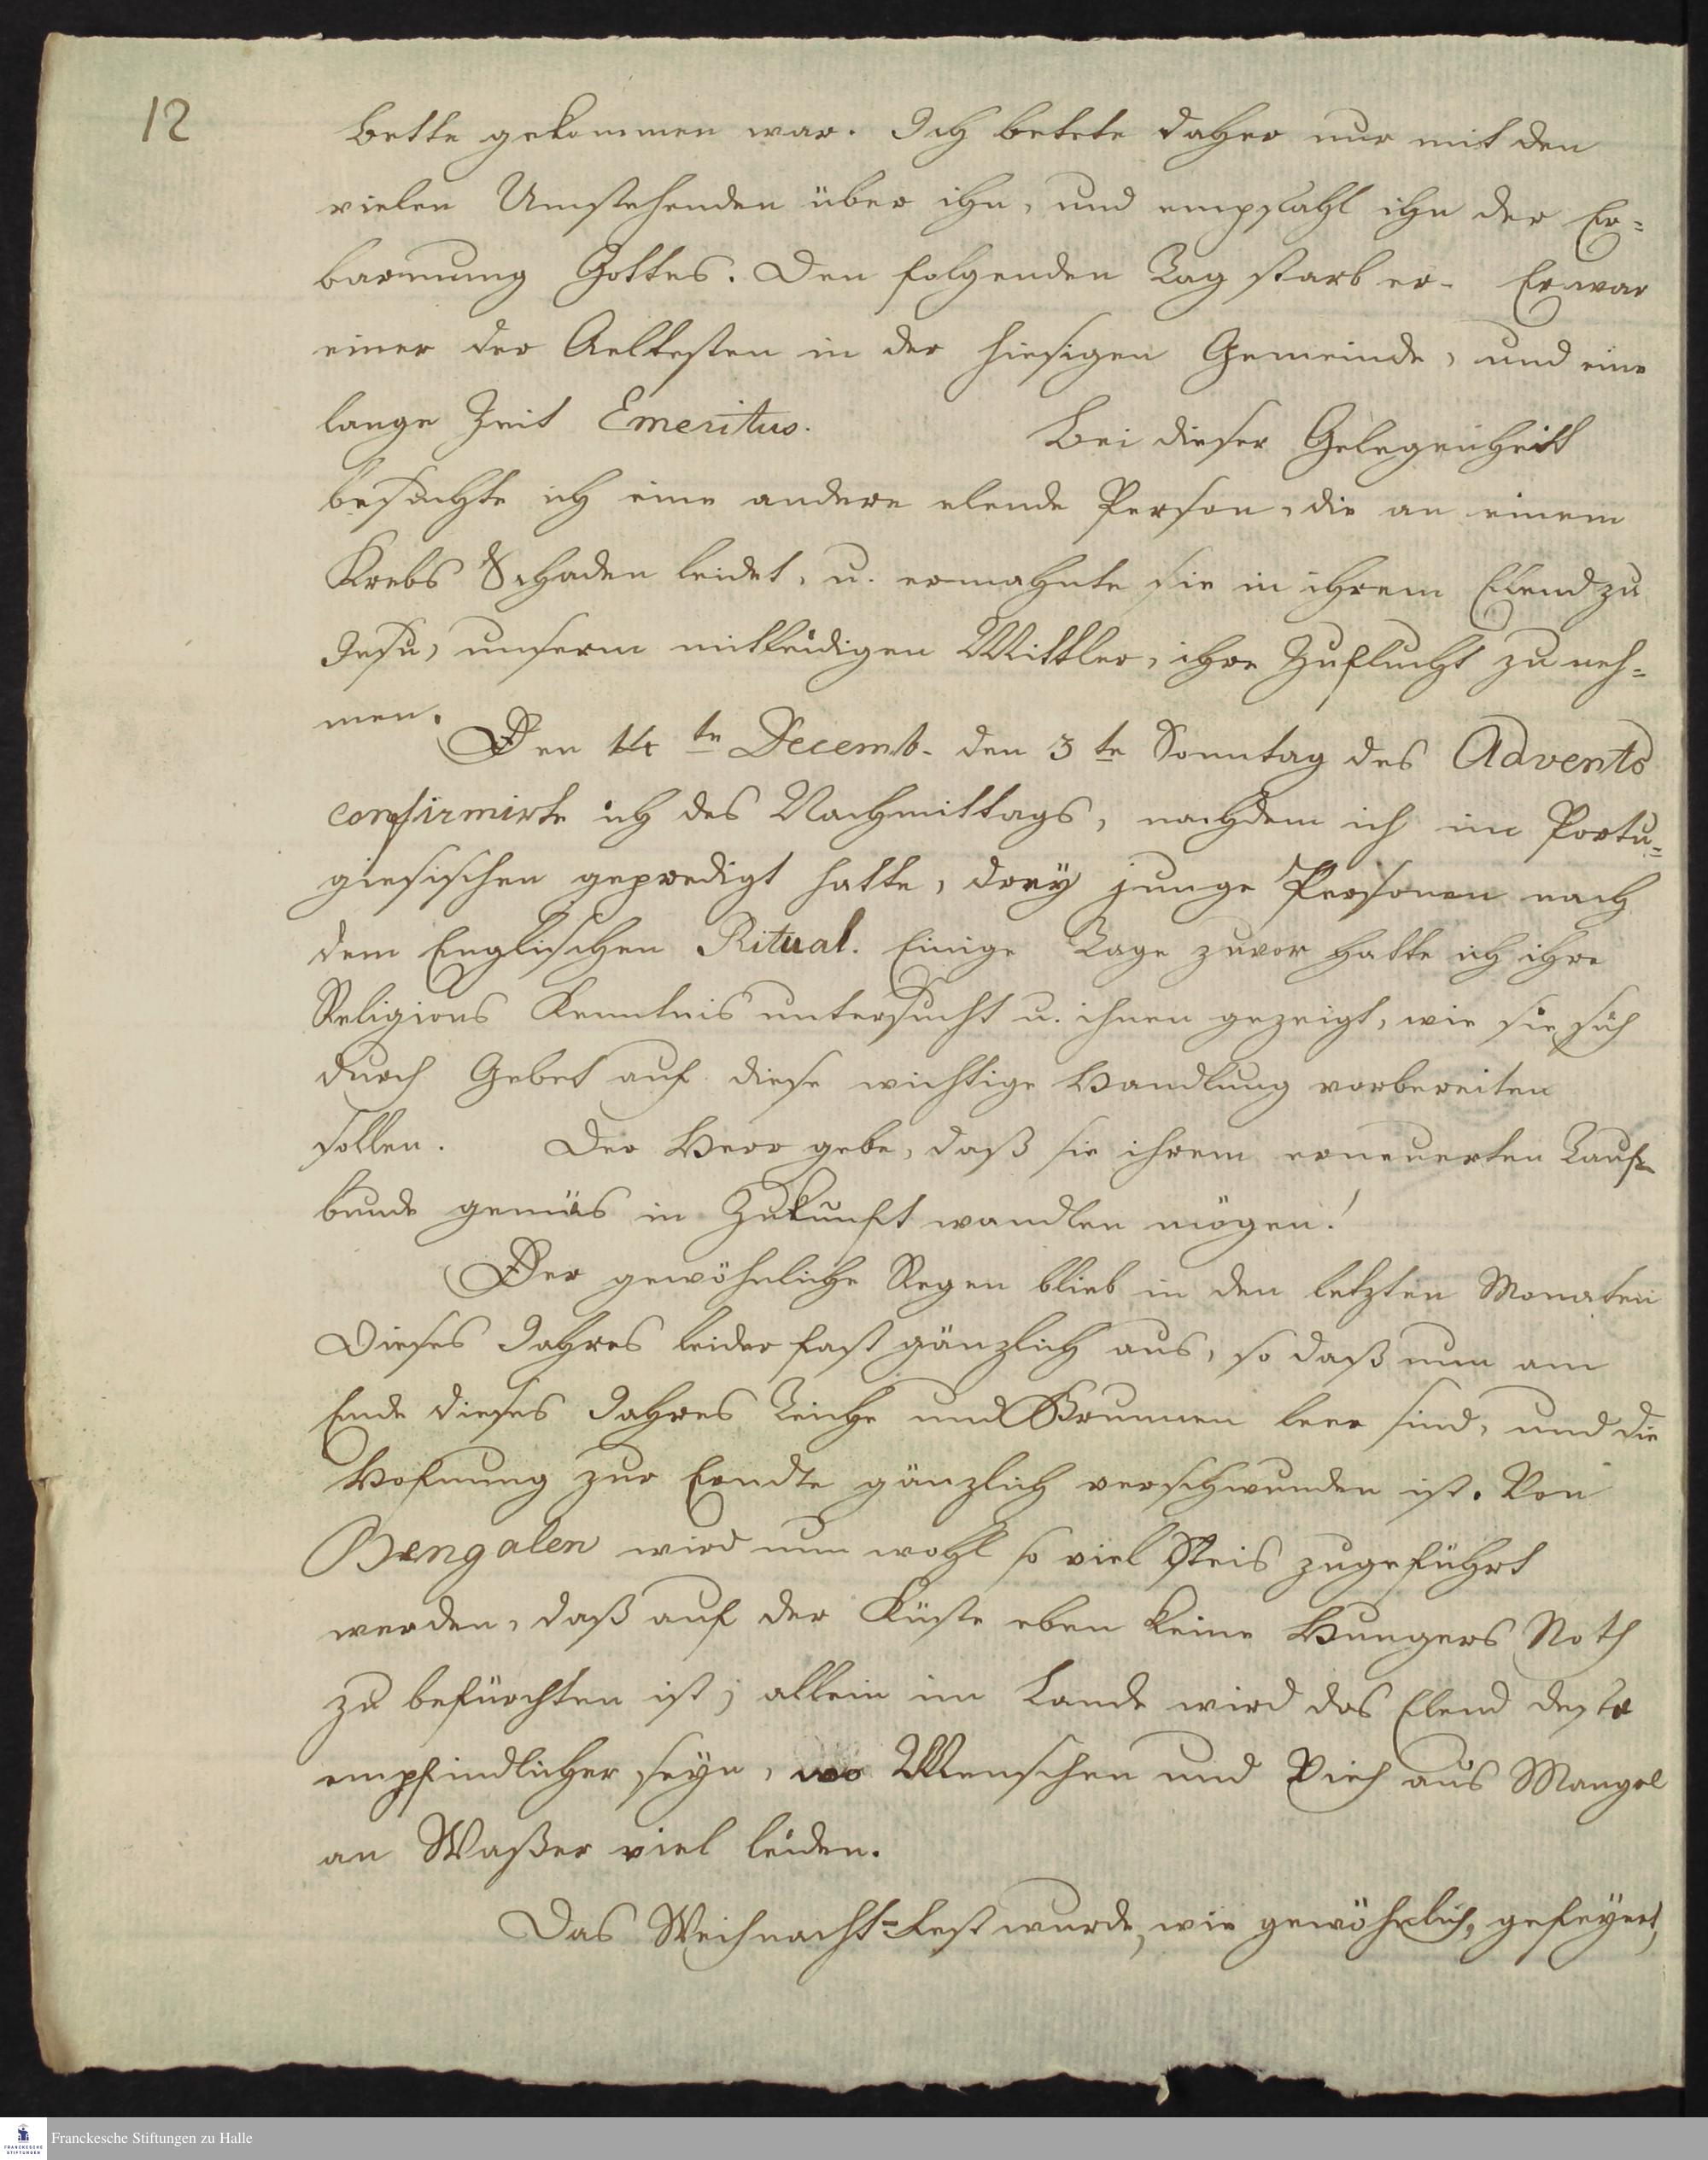 12
Bette gekommen war. Ich betete daher nur mit den
vielen Umstehenden über ihn, und empfahl ihn der Er=
barmung Gottes. Den folgenden Tag starb er. Er war
einer der Aeltesten in der hiesigen Gemeinde, und eine
lange Zeit Emeritus. Bei dieser Gelegenheitt
besuchte ich eine andere elende Person, die an einem
Krebs Schaden leidet, u. ermahnte sie in ihrem Elend zu
Jesu, unserm mitleidigen Mittler, ihre Zuflucht zu neh=
men.
Den 14 te Decemb. den 3 te Sonntag des Advents
confirmirte ich des Nachmittags, nachdem ich im Portu=
giesischen gepredigt hatte, drey junge Personen nach
dem Englischen Ritual. Einige Tage zuvor hatte ich ihre
Religions Kenntnis untersucht u. ihnen gezeigt, wie sie sich
durch Gebet auf diese wichtige Handlung vorbereiten
sollen. Der Herr gebe, daß sie ihrem erneuerten Tauf=
bunde gemäs in Zukunft wandlen mögen!
Der gewöhnliche Regen blieb in den letzten Monaten
dieses Jahres leider fast gänzlich aus, so daß nun am
Ende dieses Jahres Teiche und Brunnen leer sind, und die
Hofnung zur Erndte gänzlich verschwunden ist. Von
Bengalen wird nun wohl so viel Reis zugeführt
werden, daß auf der Küste eben keine Hungers Noth
zu befürchten ist; allein im Lande wird das Elend desto
empfindlicher seyn, wo Menschen und Vieh aus Mangel
an Waßer viel leiden.
Das Weihnacht=Fest wurde, wie gewöhnlich, gefeyert,
FRANCKESCHE STIFTUNGEN
Franckesche Stiftungen zu Halle